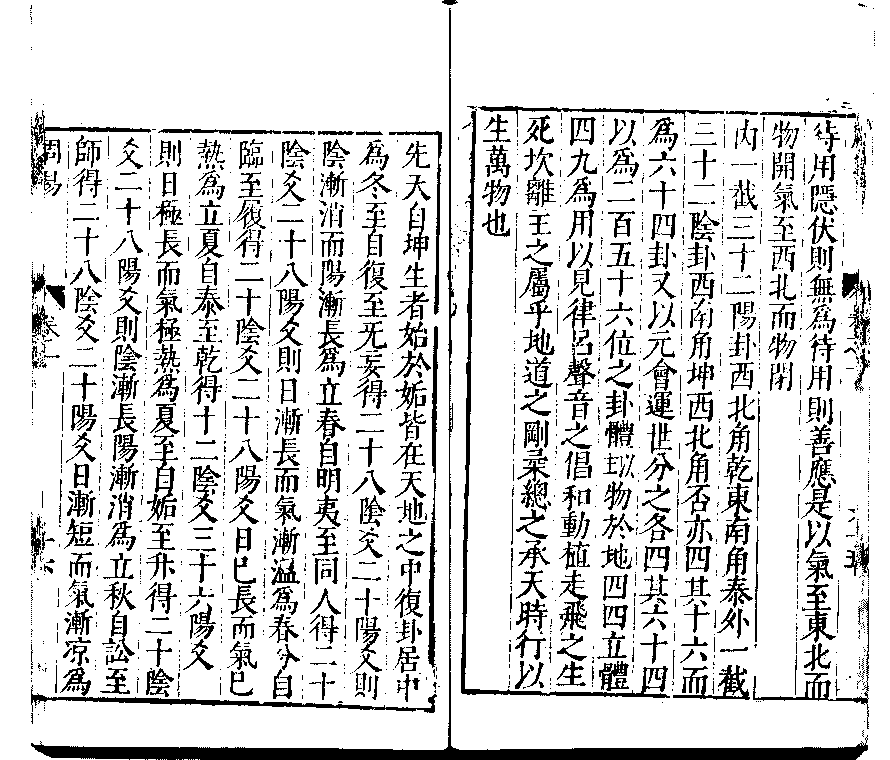 待用隱伏則無為待用則善應是以氣至東北而
物開氣至西北而物閉
內一截三十二陽卦西北角乾東南角泰外一截
三十二陰卦西南角坤西北角否亦四其十六而
為六十四卦又以元會運世分之各四其六十四
以為二百五十六位之卦體以物於地四四立體
四九為用以見律呂聲音之倡和動植走飛之生
死坎離王之屬乎地道之剛柔總之承天時行以
生萬物也
先天自坤生者始於姤皆在天地之中復卦居中
為冬至自復至无妄得二十八陰爻二十陽爻則
陰漸消而陽漸長為立春自明夷至同人得二十
陰爻二十八陽爻則日漸長而氣漸溫為春分自
臨至履得二十陰爻二十八陽爻日已長而氣已
熱為立夏自泰至乾得十二陰爻三十六陽爻
則日極長而氣極熱為夏至自姤至升得二十陰
爻二十八陽爻則陰漸長陽漸消為立秋自訟至
師得二十八陰爻二十陽爻日漸短而氣漸凉為
周易